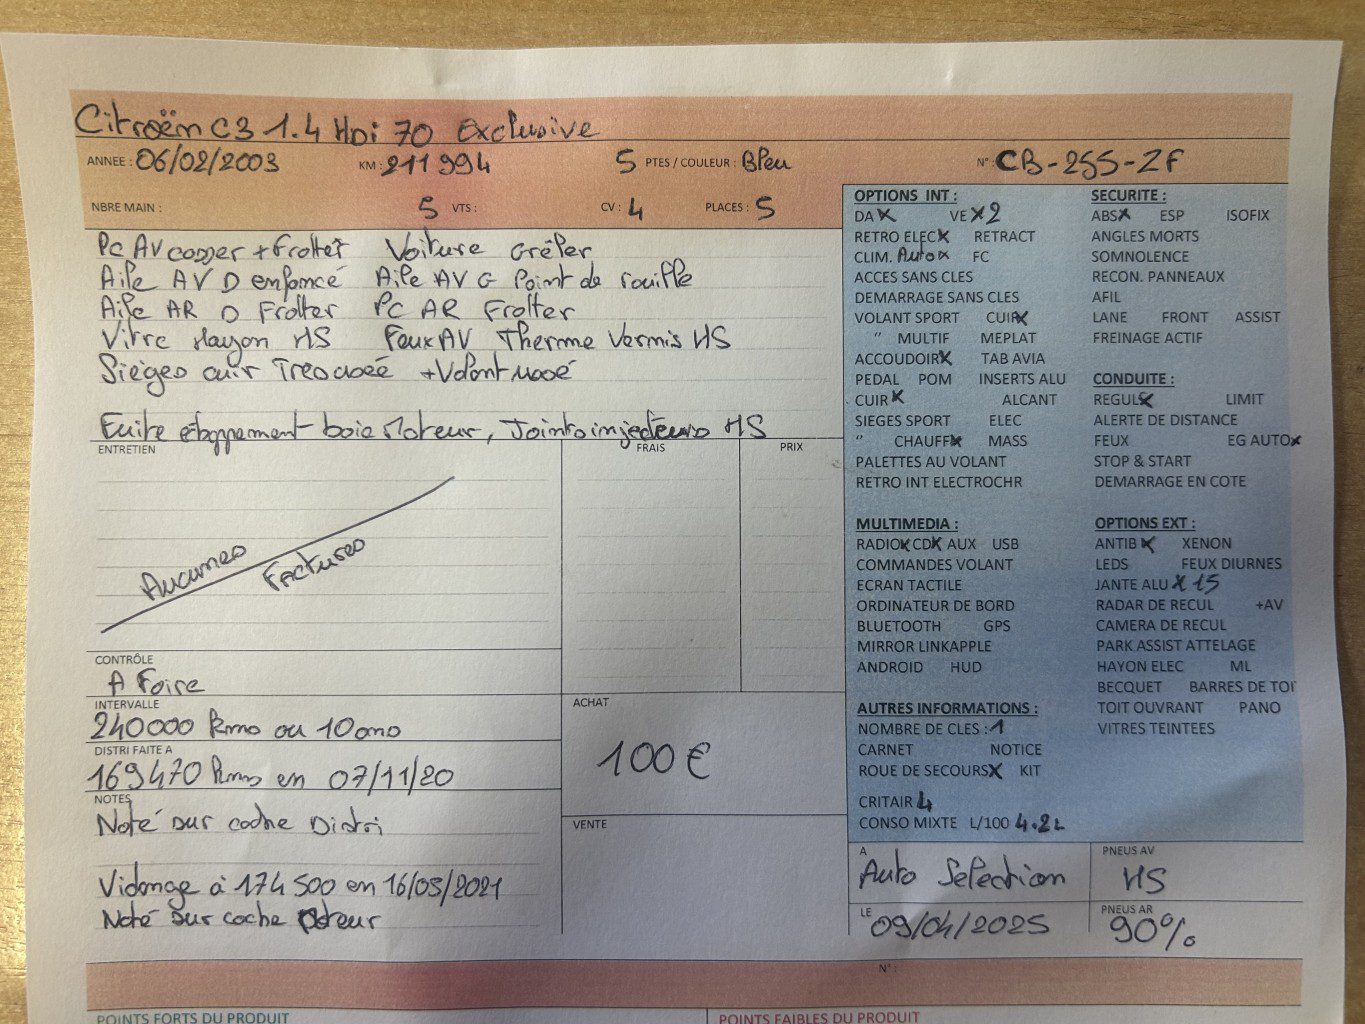 Citroën C3 1.4 Hdi 70 Exclusive
ANNEE : 06/02/2003 KM : 211 994 5 PTES / COULEUR : Bleu N° CB-255-ZF
NBRE MAIN : 5 VTS : CV : 4 PLACES : 5
Pc AV casser + Frotter Voiture Grêler
Aile AV D enfoncé Aile AV G Point de rouille
Aile AR D Frotter PC AR Frotter
Vitre Hayon HS Feux AV Therme Vernis HS
Sièges cuir Tres usée + Volant usée
Fuite échappement boie Moteur, Joints injecteurs HS
ENTRETIEN FRAIS PRIX
Aucunes Factures
CONTRÔLE
A Foire
INTERVALLE
240000 kms ou 10 ans
DISTRI FAITE A
169470 kms en 07/11/20
NOTES
Noté sur cache Distri
Vidange à 174 500 en 16/05/2021
Noté sur cache Moteur
ACHAT
100 €
VENTE
OPTIONS INT :
DA x VE x 2
RETRO ELEC x RETRACT
CLIM. Auto x FC
ACCES SANS CLES
DEMARRAGE SANS CLES
VOLANT SPORT CUIR x
" MULTIF MEPLAT
ACCOUDOIR x TAB AVIA
PEDAL POM INSERTS ALU
CUIR x ALCANT
SIEGES SPORT ELEC
" CHAUFF x MASS
PALETTES AU VOLANT
RETRO INT ELECTROCHR
MULTIMEDIA :
RADIO x CD x AUX USB
COMMANDES VOLANT
ECRAN TACTILE
ORDINATEUR DE BORD
BLUETOOTH GPS
MIRROR LINKAPPLE
ANDROID HUD
AUTRES INFORMATIONS :
NOMBRE DE CLES : 1
CARNET NOTICE
ROUE DE SECOURS x KIT
CRITAIR 4
CONSO MIXTE L/100 4.2L
SECURITE :
ABS x ESP ISOFIX
ANGLES MORTS
SOMNOLENCE
RECON. PANNEAUX
AFIL
LANE FRONT ASSIST
FREINAGE ACTIF
CONDUITE :
REGUL x LIMIT
ALERTE DE DISTANCE
FEUX EG AUTO x
STOP & START
DEMARRAGE EN COTE
OPTIONS EXT :
ANTIB x XENON
LEDS FEUX DIURNES
JANTE ALU x 15
RADAR DE RECUL +AV
CAMERA DE RECUL
PARK ASSIST ATTELAGE
HAYON ELEC ML
BECQUET BARRES DE TOI
TOIT OUVRANT PANO
VITRES TEINTEES
A
Auto Selection
PNEUS AV
HS
LE
09/04/2025
PNEUS AR
90%
N° :
POINTS FORTS DU PRODUIT POINTS FAIBLES DU PRODUIT